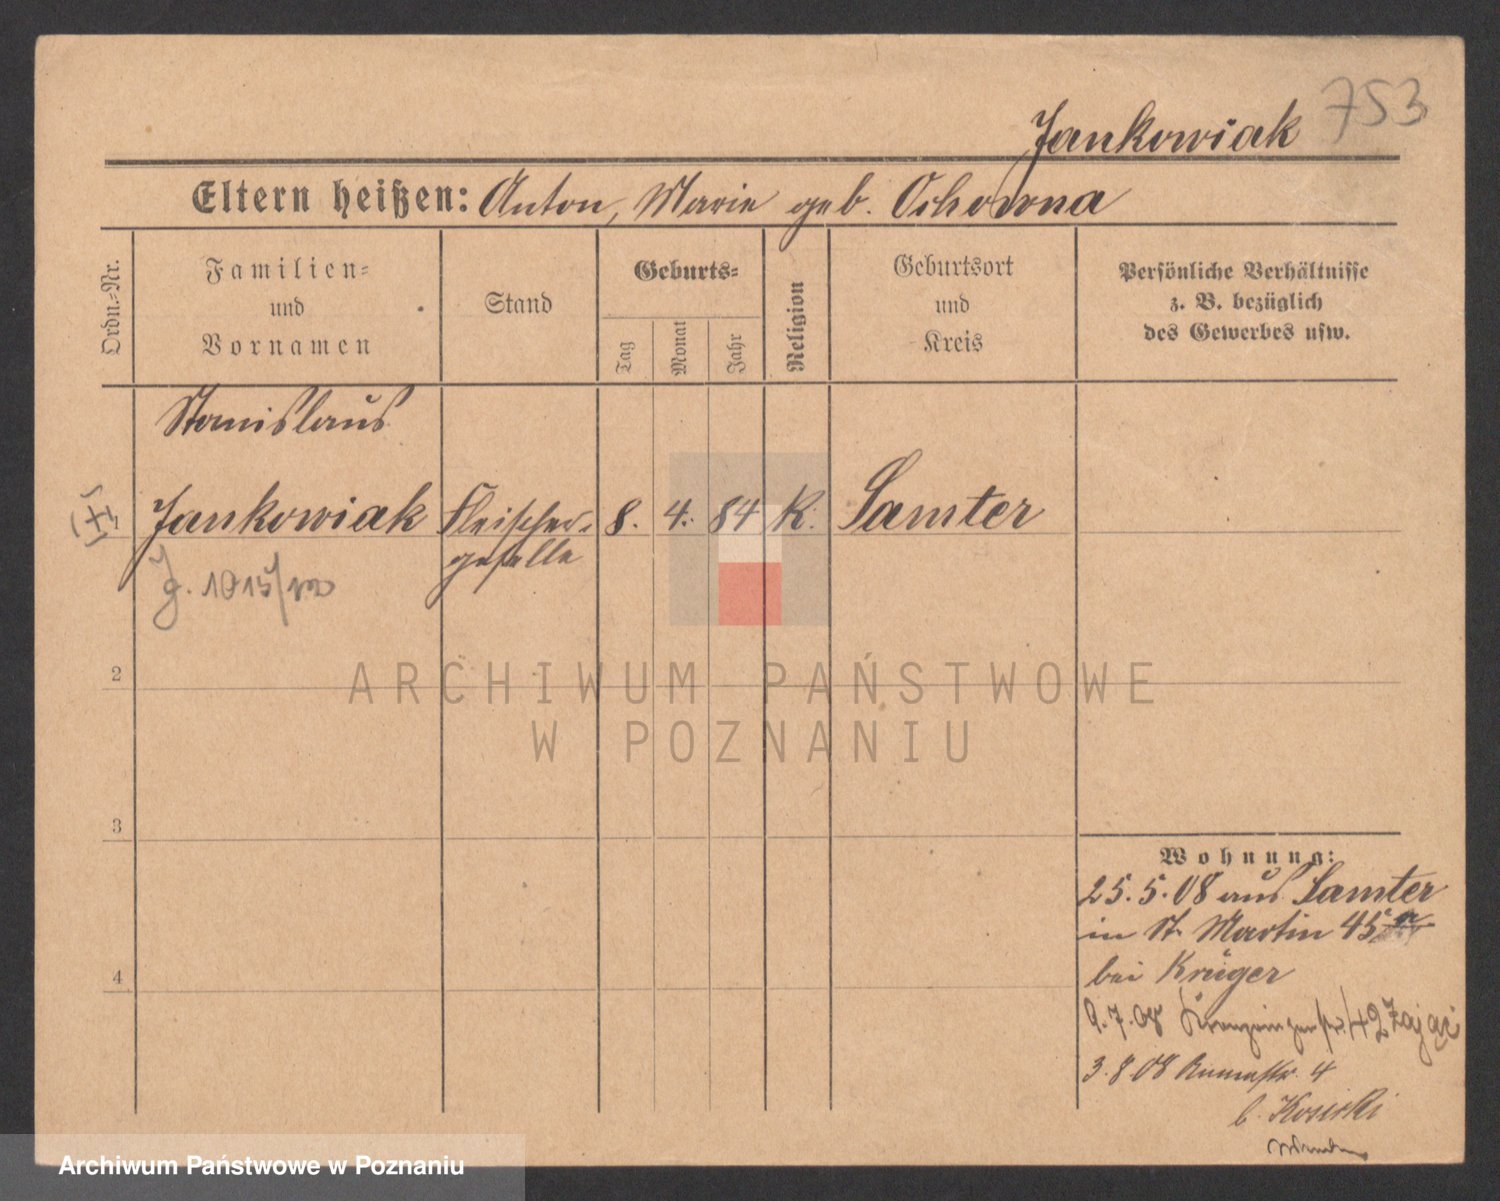 753
Jankowiak
Eltern heißen: Anton, Marie geb. Ochowna
Ordn.=Nr.
Familien=
und
Vornamen
Stand
Geburts=
Tag
Monat
Jahr
Religion
Geburtsort
und
Kreis
Persönliche Verhältnisse
z. B. bezüglich
des Gewerbes usw.
Stanislaus
Jankowiak Fleischer- 8. 4. 84 K. Samter
geselle
J. 1015/
2
3
4
Wohnung:
25.5.08 aus Samter
in St. Martin 45
bei Krüger
9.7.08 42 Zając
3.8.08 4
b. Kosicki
ARCHIWUM PAŃSTWOWE
W POZNANIU
Archiwum Państwowe w Poznaniu